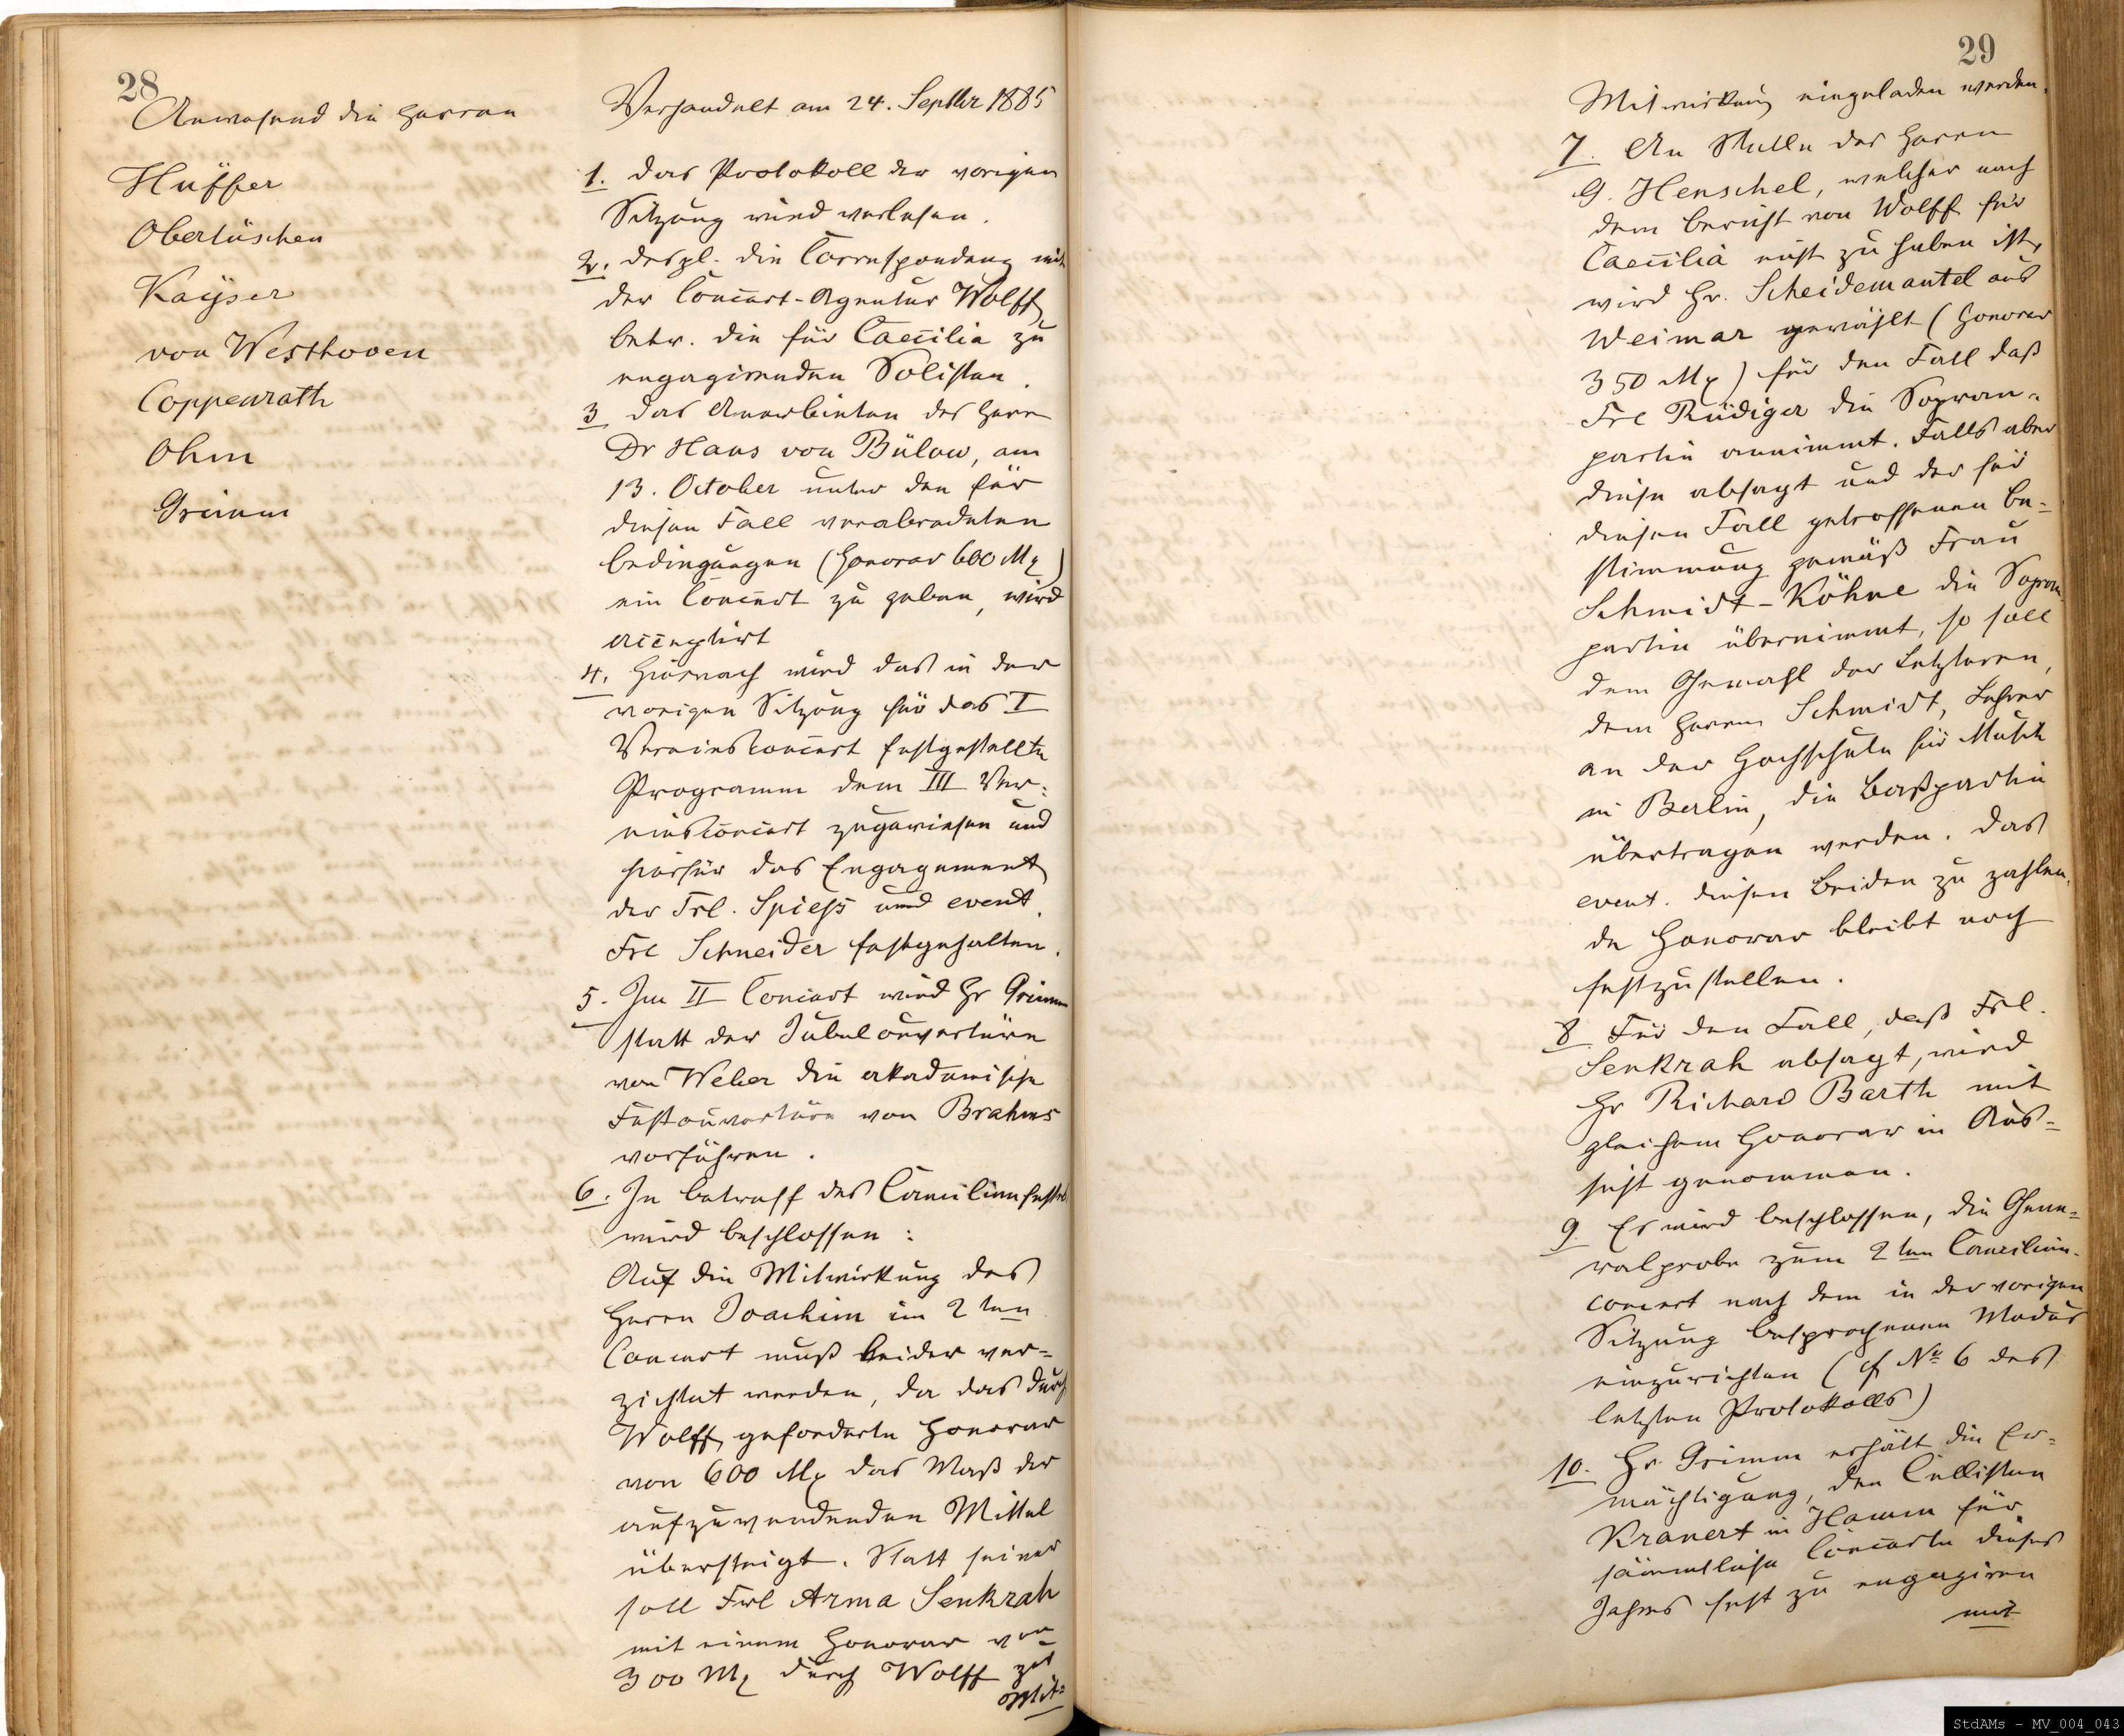 28
Anwesend die Herren
Hüffer
Obertüschen
Kayser
von Westhoven
Coppenrath
Ohm
Grimm
Verhandelt am 24. Septbr 1885
1. Das Protokoll der vorigen
Sitzung wird verlesen.
2. desgl. die Correspondenz mit
der Concert-Agentur Wolff
betr. die für Caecilia zu
engagirenden Solisten.
3 Das Anerbieten des Herrn
Dr Hans von Bülow, am
13. October unter den für
diesen Fall verabredeten
Bedingungen (Honorar 600 Mk)
ein Concert zu geben, wird
acceptirt
4. Hiernach wird das in der
vorigen Sitzung für das I
Vereinsconcert festgestellte
Programm dem III Ver-
einsconcert zugewiesen und
hierfür das Engagement
der Frl. Spieß und event.
Frl Schneider festgehalten.
5. Im II Concert wird Hr Grimm
statt der Jubelouvertüre
von Weber die akademische
Festouvertüre von Brahms
vorführen.
6. In Betreff des Caecilienfestes
wird beschlossen:
Auf die Mitwirkung des
Herrn Joachim im 2ten
Concert muß leider ver-
zichtet werden, da das durch
Wolff geforderte Honorar
von 600 Mk das Maß der
aufzuwendenden Mittel
übersteigt. Statt seiner
soll Frl Arma Senkrah
mit einem Honorar von
300 Mk durch Wolff zur
Mit-
29
Mitwirkung eingeladen werden.
7. An Stelle des Herrn
G. Henschel, welcher nach
dem Bericht von Wolff für
Caecilia nicht zu haben ist,
wird Hr. Scheidemantel aus
Weimar gewählt (Honorar
350 Mk) für den Fall daß
Frl Rüdiger die Sopran-
partie annimmt. Falls aber
diese absagt und der für
diesen Fall getroffenen Be-
stimmung gemäß Frau
Schmidt-Köhne die Sopran-
partie übernimmt, so soll
dem Gemahl der Letzteren,
dem Herrn Schmidt, Lehrer
an der Hochschule für Musik
in Berlin, die Baßpartie
übertragen werden. Das
event. diesen Beiden zu zahlen-
de Honorar bleibt noch
festzustellen.
8 Für den Fall, daß Frl.
Senkrah absagt, wird
Hr Richard Barth mit
gleichem Honorar in Aus-
sicht genommen.
9. Es wird beschlossen, die Gene-
ralprobe zum 2ten Caecilien-
concert nach dem in der vorigen
Sitzung besprochenen Modus
einzurichten (cf No 6 des
letzten Protokolls)
10. Hr. Grimm erhält die Er-
mächtigung, den Cellisten
Kranert in Hamm für
sämmtliche Concerte dieses
Jahres fest zu engagiren
mit
StdAMs - MV_004_043